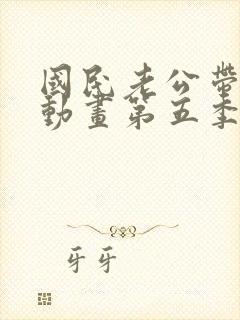 國民老公帶
動畫第五季
牙牙